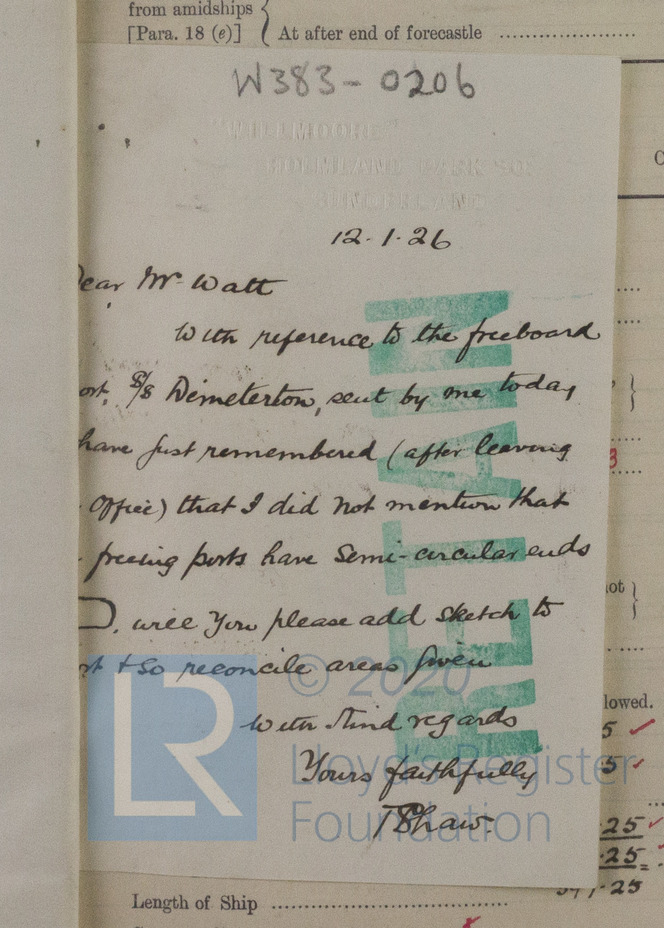 from amidships
[Para. 18 (e)] At after end of forecastle ....................
W383-0206
"WILLMOORE"
SUNDERLAND
12.1.26
ear Mr Watt
With reference to the freeboard
ort, S/S Demeterton, sent by me today
have just remembered (after leaving
office) that I did not mention that
freeing ports have semi-circular ends
. will you please add sketch to
rt & so reconcile areas given
With kind regards
Yours faithfully
TShaw.
RETAIN
LR
© 2020
Lloyd's Register
Foundation
3
not
lowed.
5
5
.25
.25
.25
Length of Ship ........................................